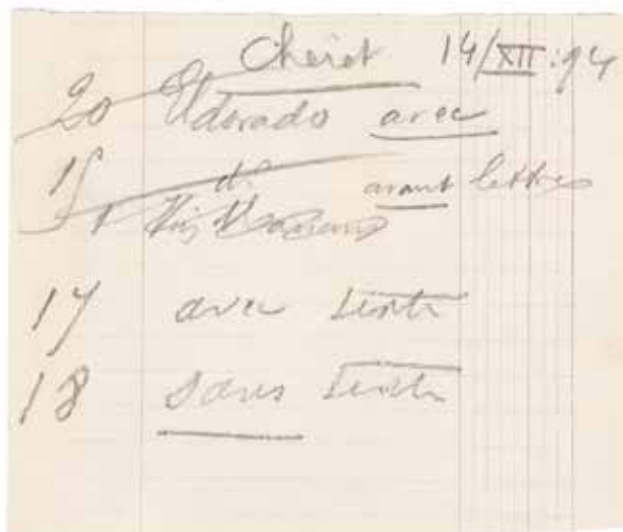 Cheret 14/XII:94
20 Eldorado avec
15 do avant lettres
1
17 avec texte
18 sans texte